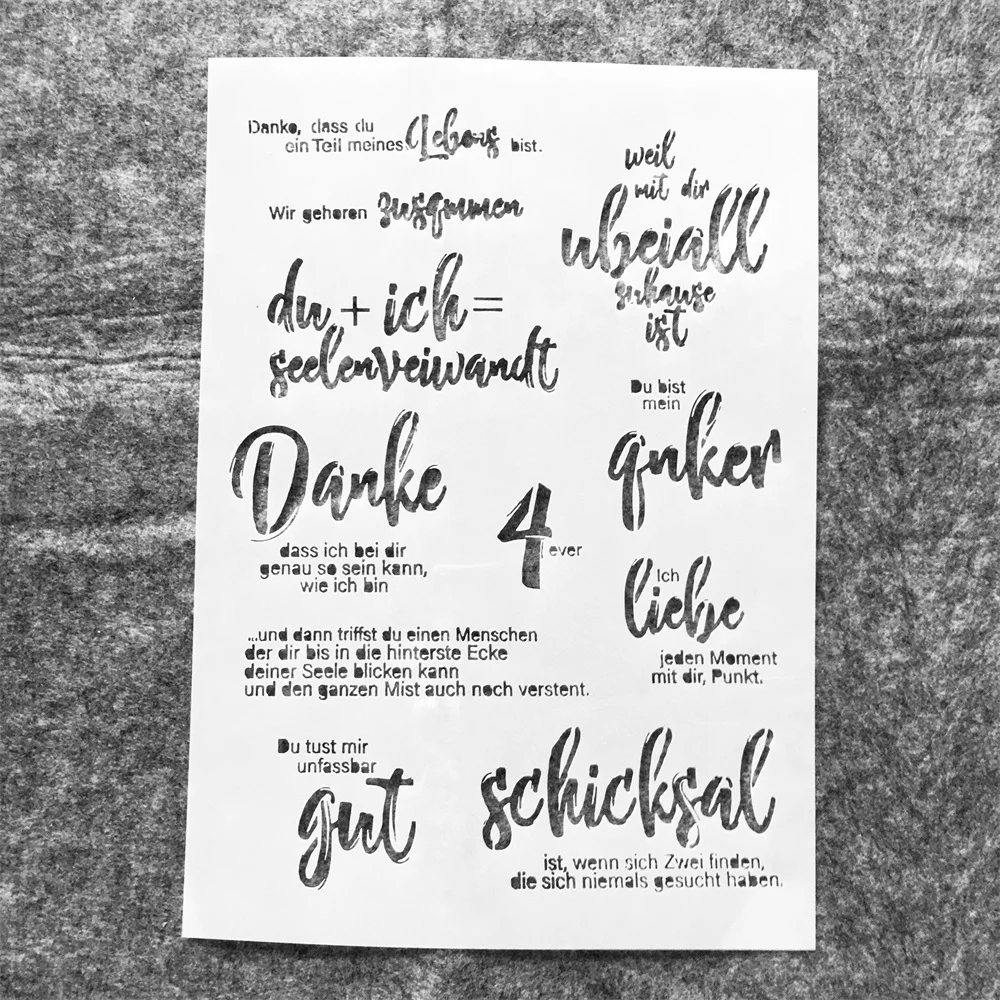 Danke, dass du
ein Teil meines Lebens bist.
Wir gehoren zusammen
du + ich =
seelenveiwandt
weil
mit dir
ubeiall
zuhause
ist
Du bist
mein
anker
Danke
dass ich bei dir
genau so sein kann,
wie ich bin
4 ever
Ich
liebe
jeden Moment
mit dir, Punkt.
...und dann triffst du einen Menschen
der dir bis in die hinterste Ecke
deiner Seele blicken kann
und den ganzen Mist auch noch verstent.
Du tust mir
unfassbar
gut
schicksal
ist, wenn sich Zwei finden,
die sich niemals gesucht haben.